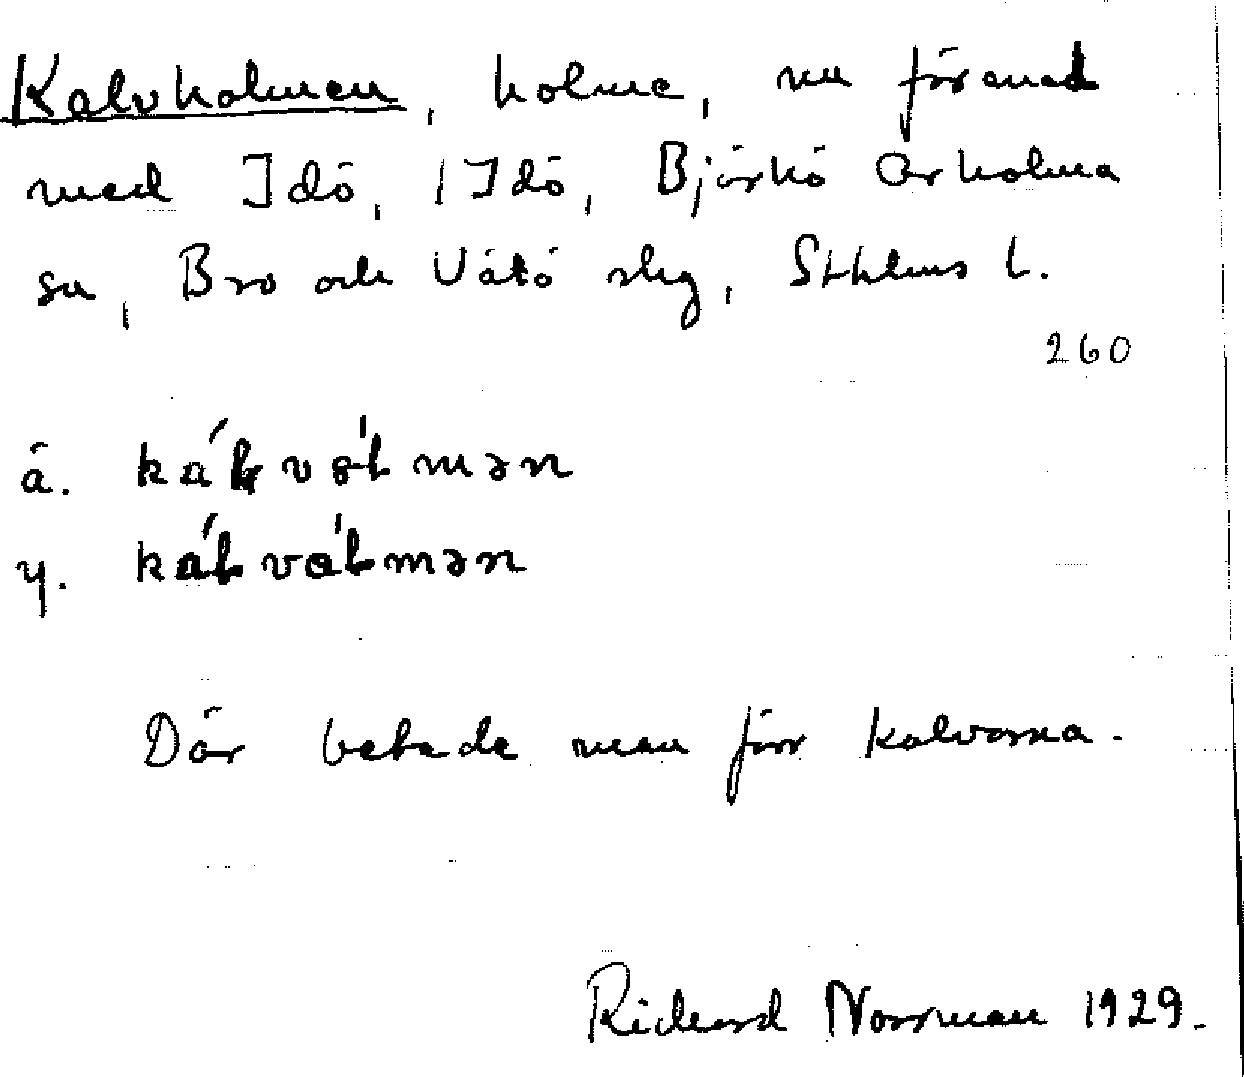 Kalvholmen, holme, nu förenad
med Idö, 1 Idö, Björkö Arholma
sn, Bro och Vätö slg, Sthlms l.
260
ä.
y.
Där betade man förr kalvarna.
Richard Norrman 1929.